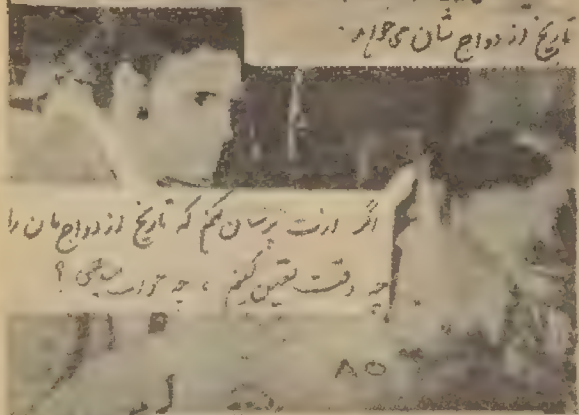 تاریخ ازدواج شان می خواهد .
اگر ازت پرسان کنم که تاریخ ازدواج مان را
چه وقت تعیین کنیم ، چه جواب میدهی ؟
۸۵